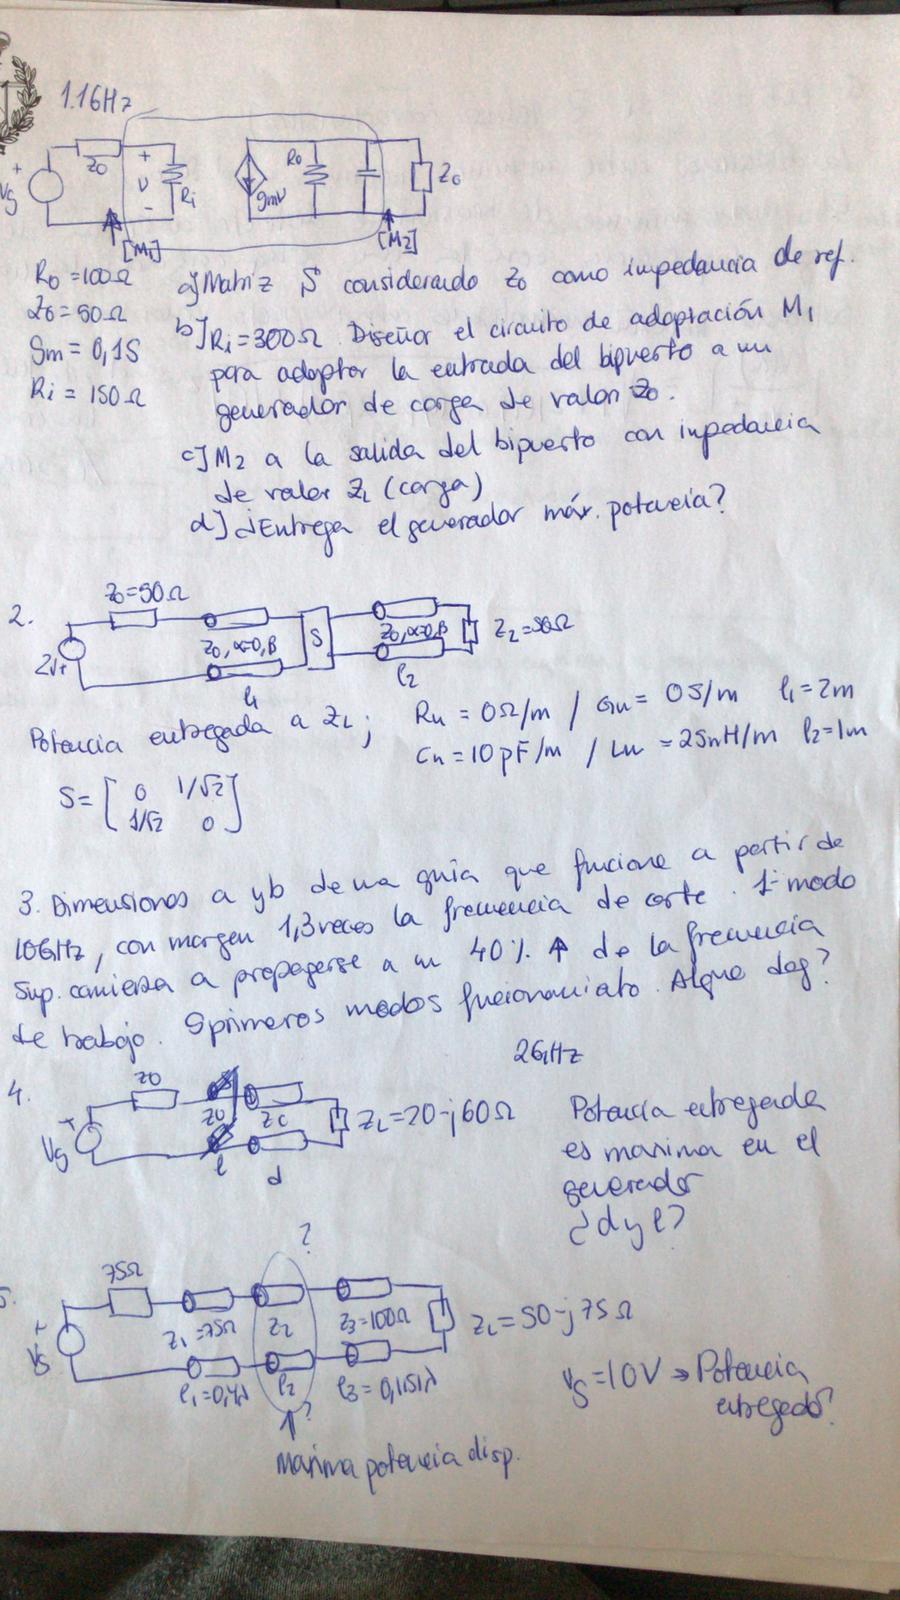 1.1GHz
+
Vg
Z0
+
V
-
Ri
gmV
Ro
Z0
[M1]
[M2]
Ro = 100Ω
Z0 = 50Ω
gm = 0,1S
Ri = 150Ω
a] Matriz S considerando Z0 como impedancia de ref.
b] Ri = 300Ω Diseñar el circuito de adaptación M1
para adaptar la entrada del bipuerto a un
generador de carga de valor Z0.
c] M2 a la salida del bipuerto con impedancia
de valor ZL (carga)
d] ¿Entrega el generador máx. potencia?
2.
Z0=50Ω
2V+
Z0, α=0, β
l1
S
Z0, α=0, β
l2
ZL=50Ω
Potencia entregada a ZL;
Ru = 0Ω/m / Gu = 0S/m l1 = 2m
Cu = 10pF/m / Lu = 25nH/m l2 = 1m
S = [ 0 1/√2 ]
1/√2 0
3. Dimensiones a y b de una guía que funcione a partir de
10GHz, con margen 1,3 veces la frecuencia de corte. 1er modo
Sup. comienza a propagarse a un 40% ↑ de la frecuencia
de trabajo. 5 primeros modos funcionamiento. Algun deg?
2GHz
4.
+
Vg
Z0
Z0
l
Zc
d
ZL = 20-j60Ω
Potencia entregada
es maxima en el
generador
¿d y l?
5.
+
Vg
75Ω
Z1 = 75Ω
l1 = 0,4λ
?
Z2
l2
?
Z3 = 100Ω
l3 = 0,1151λ
ZL = 50-j75Ω
Vg = 10V → Potencia
entregada?
Maxima potencia disp.